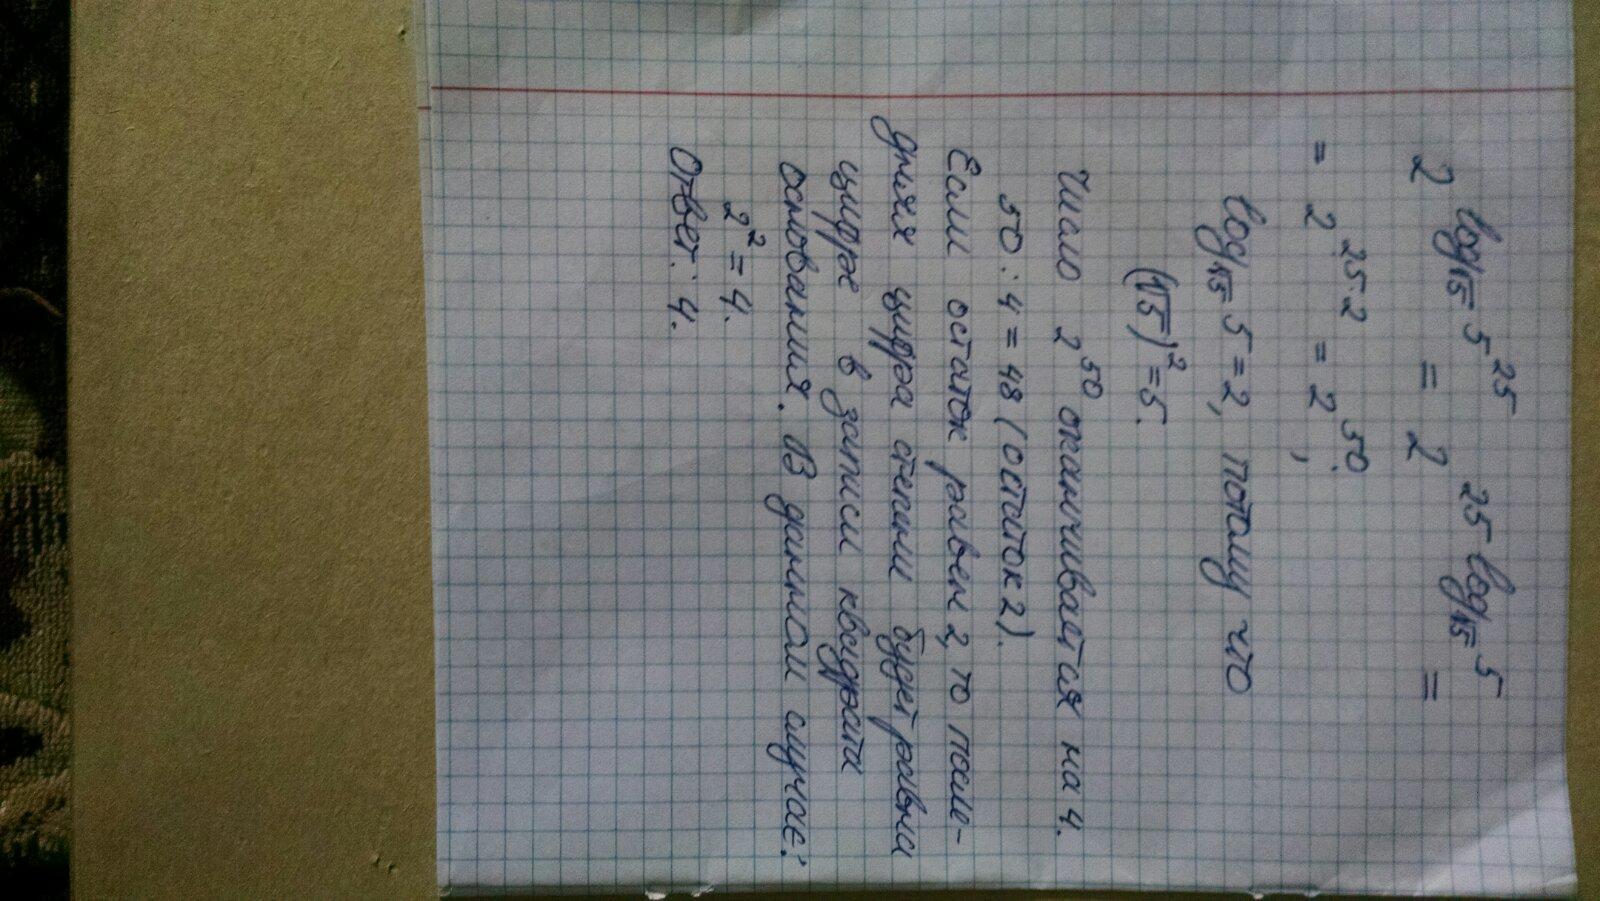 2^{log_{√5} 5^{25}} = 2^{25 log_{√5} 5} =
= 2^{25·2} = 2^{50};
log_{√5} 5 = 2, потому что
(√5)² = 5.
Число 2^{50} оканчивается на 4.
50 : 4 = 48 (остаток 2).
Если остаток равен 2, то после-
дняя цифра степени будет равна
цифре в записи квадрата
основания. В данном случае:
2² = 4.
Ответ: 4.